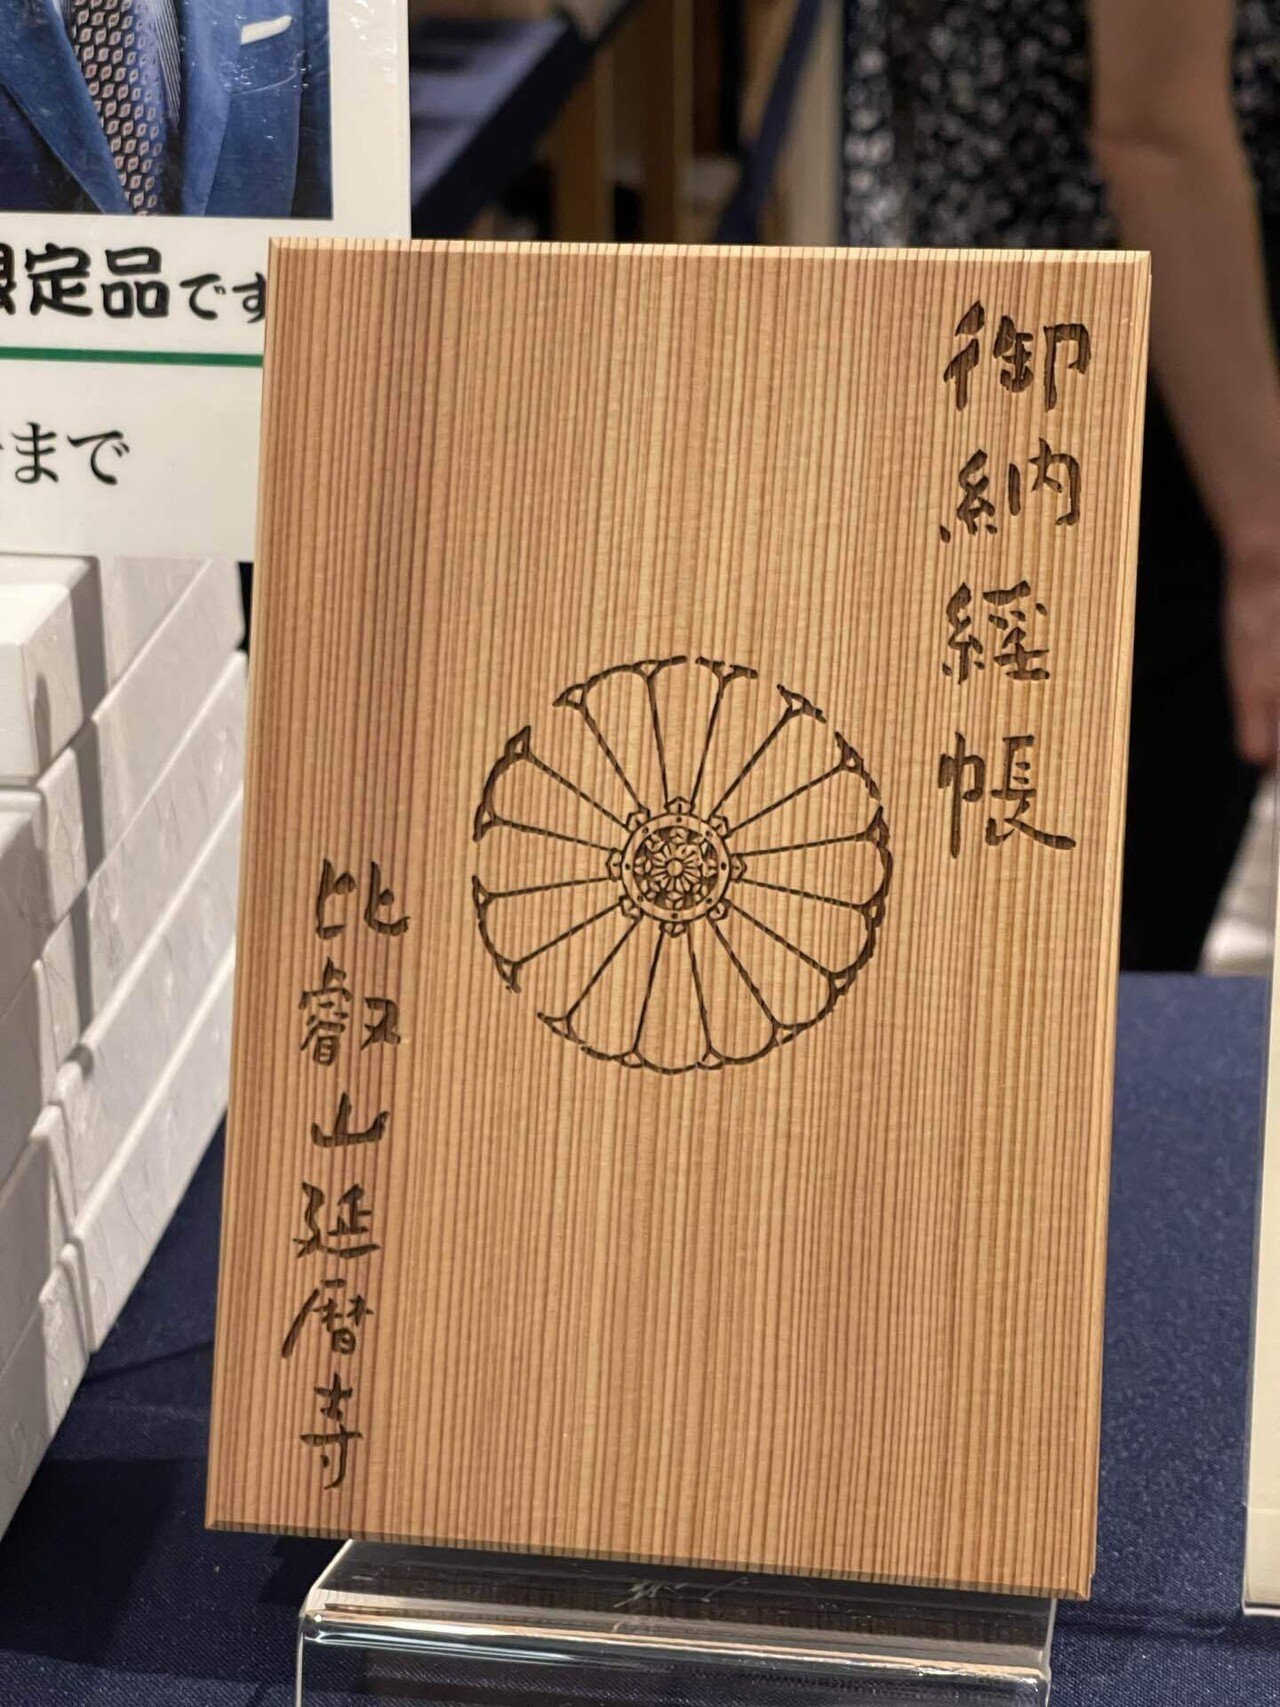 御納経帳
比叡山延暦寺
定品です
まで